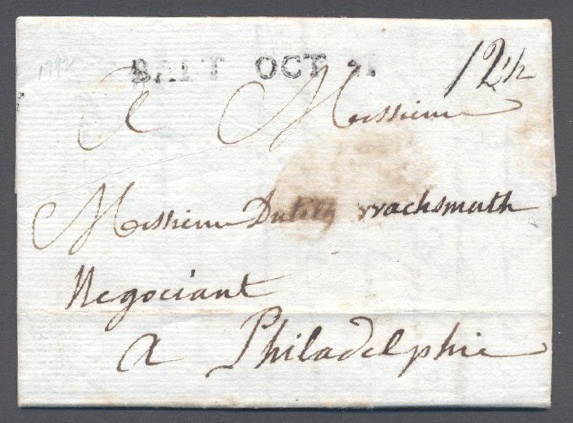 BALT OCT 12½
A Messieurs
Messieurs Dutilh Wachsmuth
Negociant
a Philadelphie